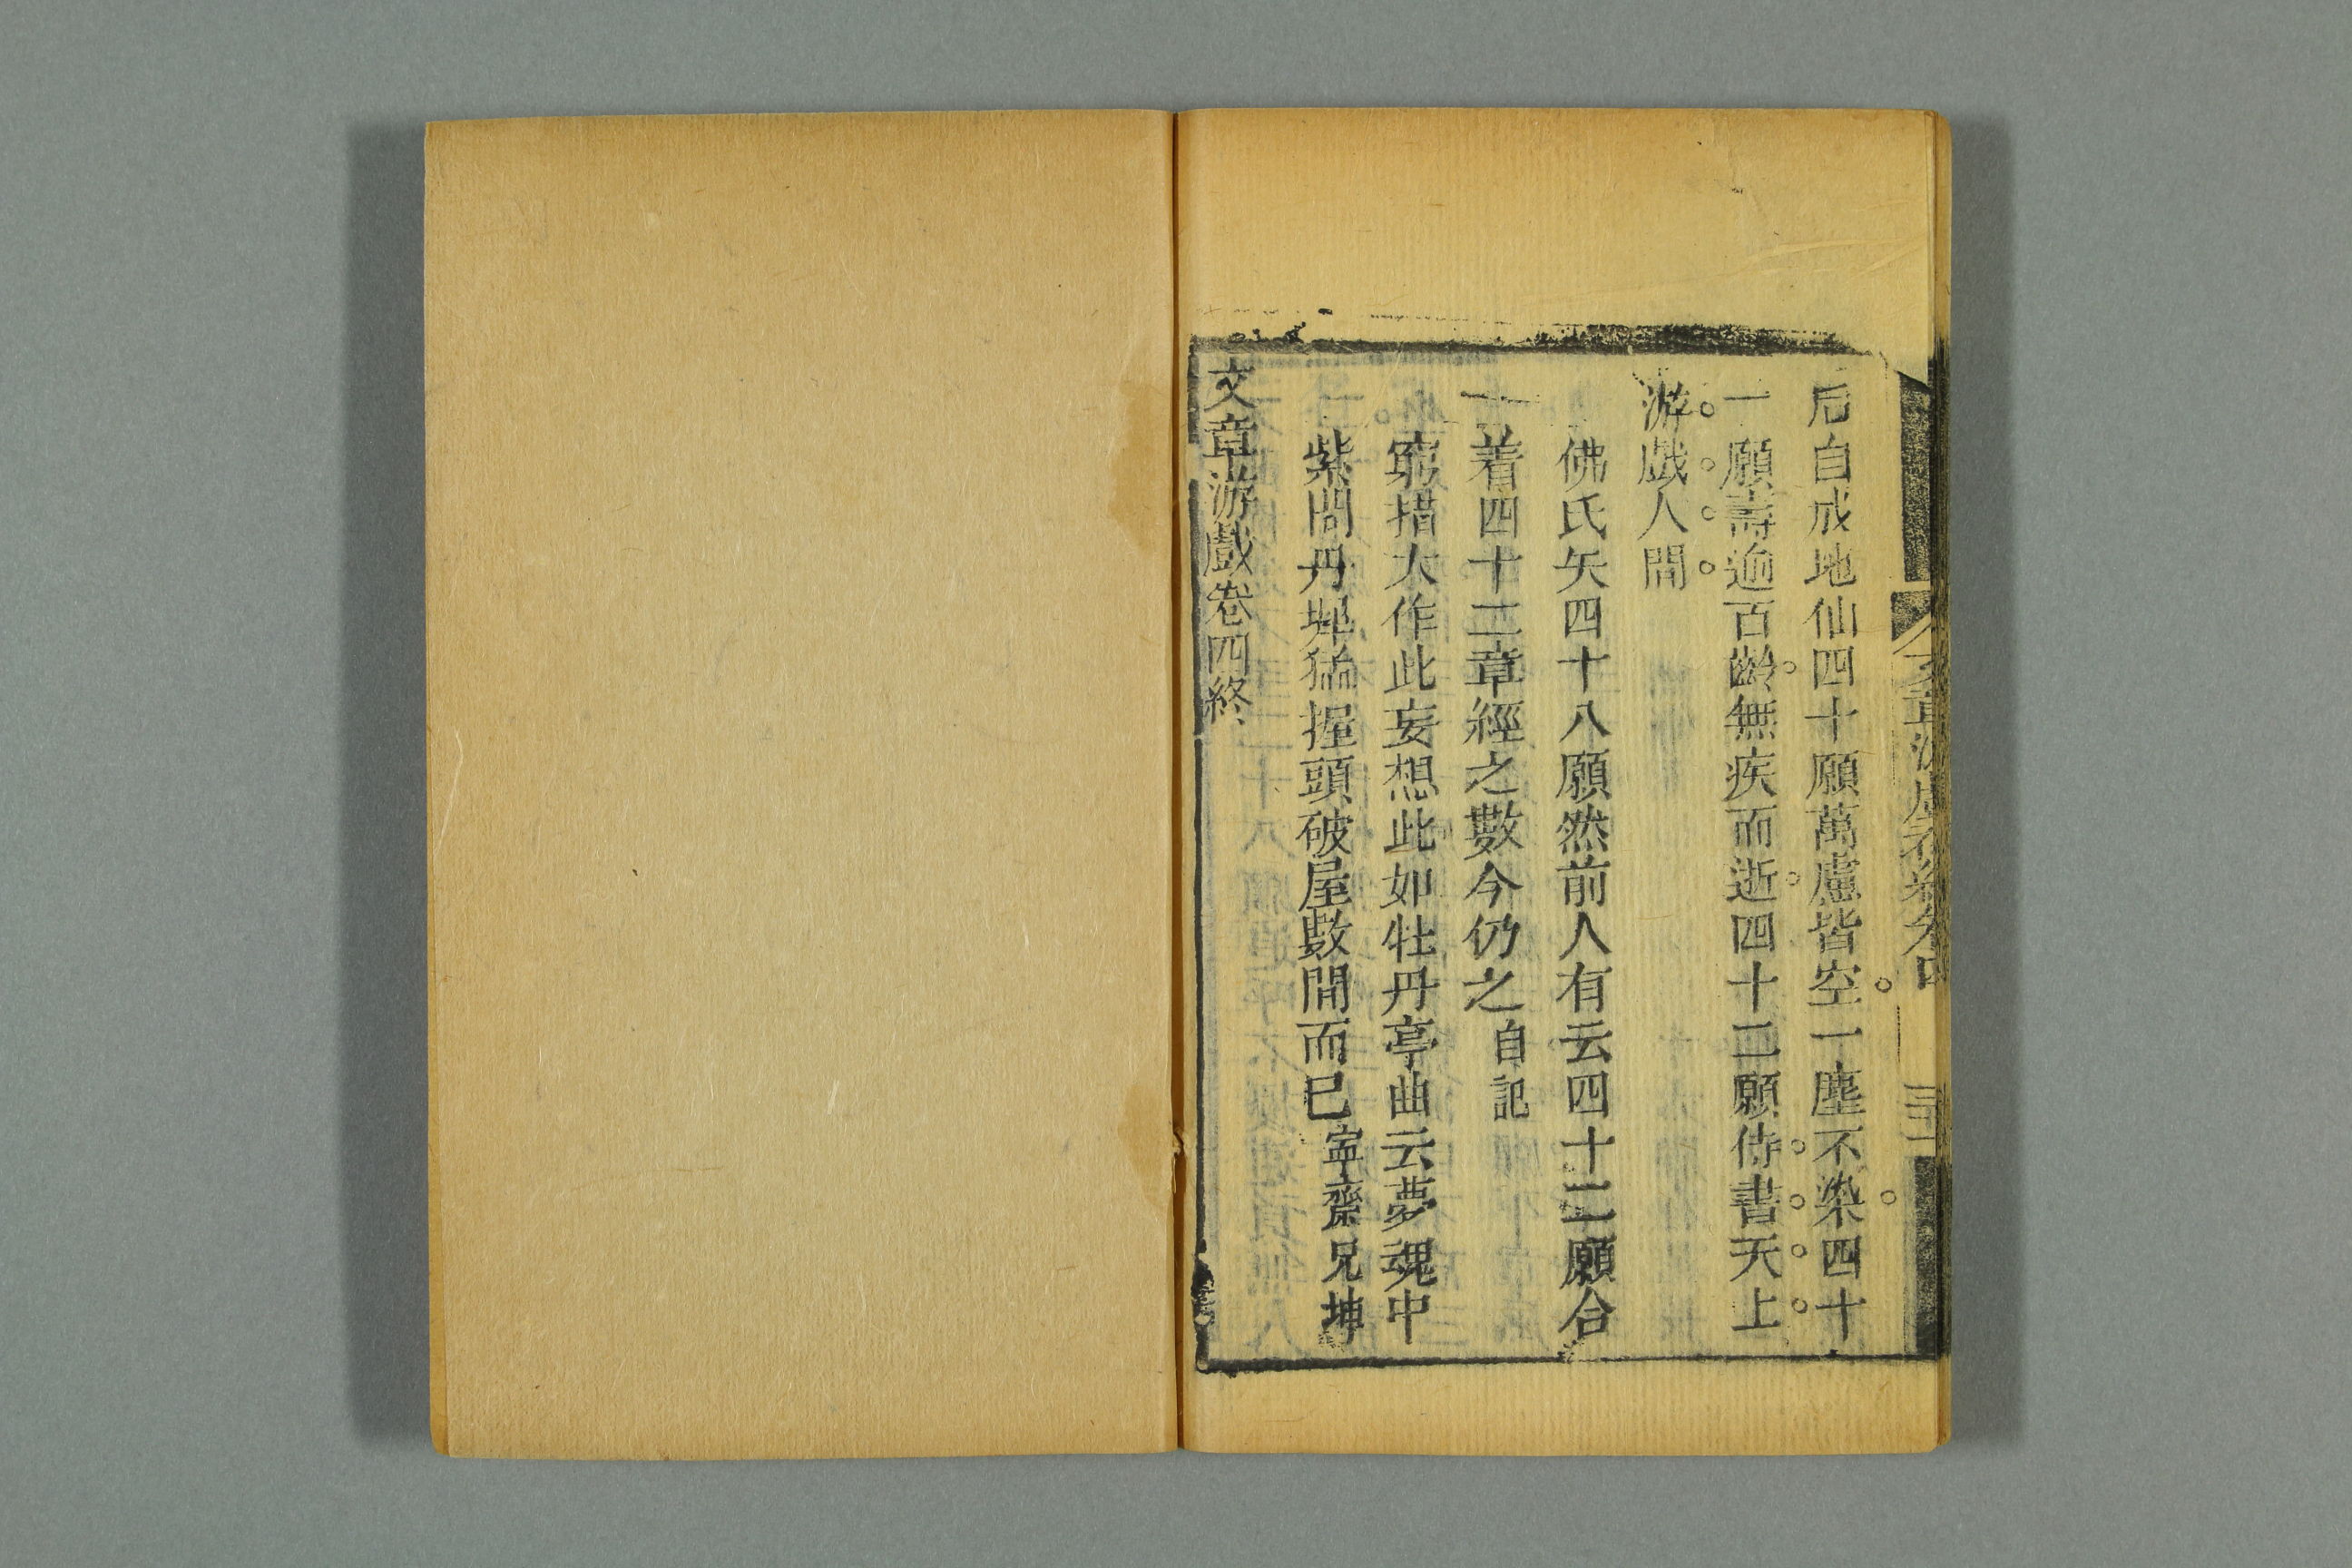 后自成地仙四十願萬慮皆空一塵不染四十
一願壽逾百齡無疾而逝四十二願侍書天上
游戯人間
佛氏矢四十八願然前人有云四十二願合
着四十二章經之數今仍之自記
窮措大作此妄想此如牡丹亭曲云夢魂中
紫閣丹墀猛握頭破屋數間而已寧齋兄坤
文章游戲卷四終